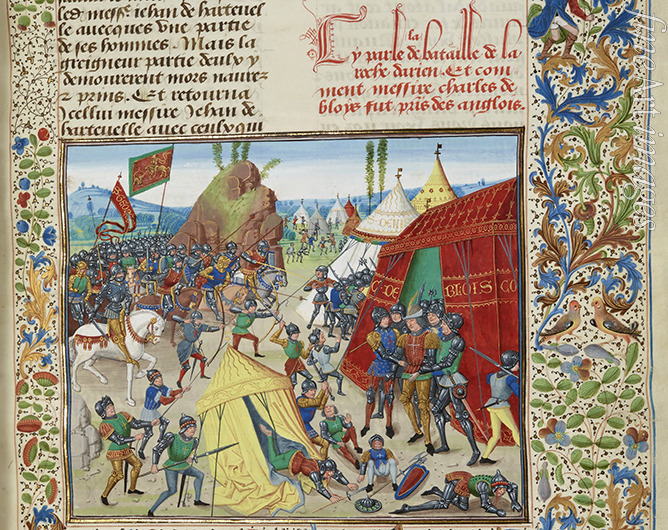 les. Messire Jehan de hartevel
le avecques une partie
de ses hommes. Mais la
greigneur partie deulx y
demourerent mors navrez
z prins. Et retourna
icellui messire Jehan de
hartevelle avec ceulx qui
la
Cy parle de bataille de la
roche darien. Et com
ment messire charles de
bloys fut pris des anglois.
C DE BLOIS CO
fineartimages